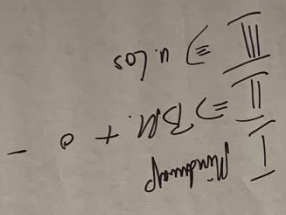 I Mindmap
II ⇒ B.M. + o -
III ⇒ u. Los